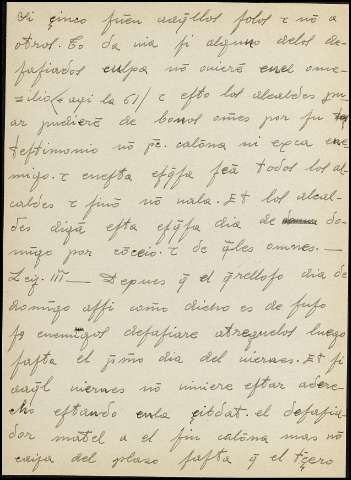 Si çinco fuẽn aq̃llos solos τ nõ a
otros. Eo da uia si alguno delos de-
safiados culpa nõ ouierẽ enel ome-
zilio (= aqi la 61) τ esto los alcaldes pu-
ar pudierẽ de bonos oṁes por su
testimonio nõ pẽ. calõna ni exca ene-
migo. τ enesta esq̃sa seã todos los al-
caldes τ sinõ nõ uala. Et los alcal-
des digã esta esq̃sa dia de do-
mĩgo por cõceio. τ de q̃les omnes. —
Ley. III — Depues q̃ el q̃relloso dia de
domĩgo assi como dicho es de suso
so enemigos desafiare atreguelos luego
fasta el p̃mo dia del uiernes. Et si
aq̃l uiernes nõ uiniere estar adere-
cho estando enla çibdat. el desafia-
dor matel a el sin calõna mas nõ
caya del plazo fasta q̃ el t̃çero